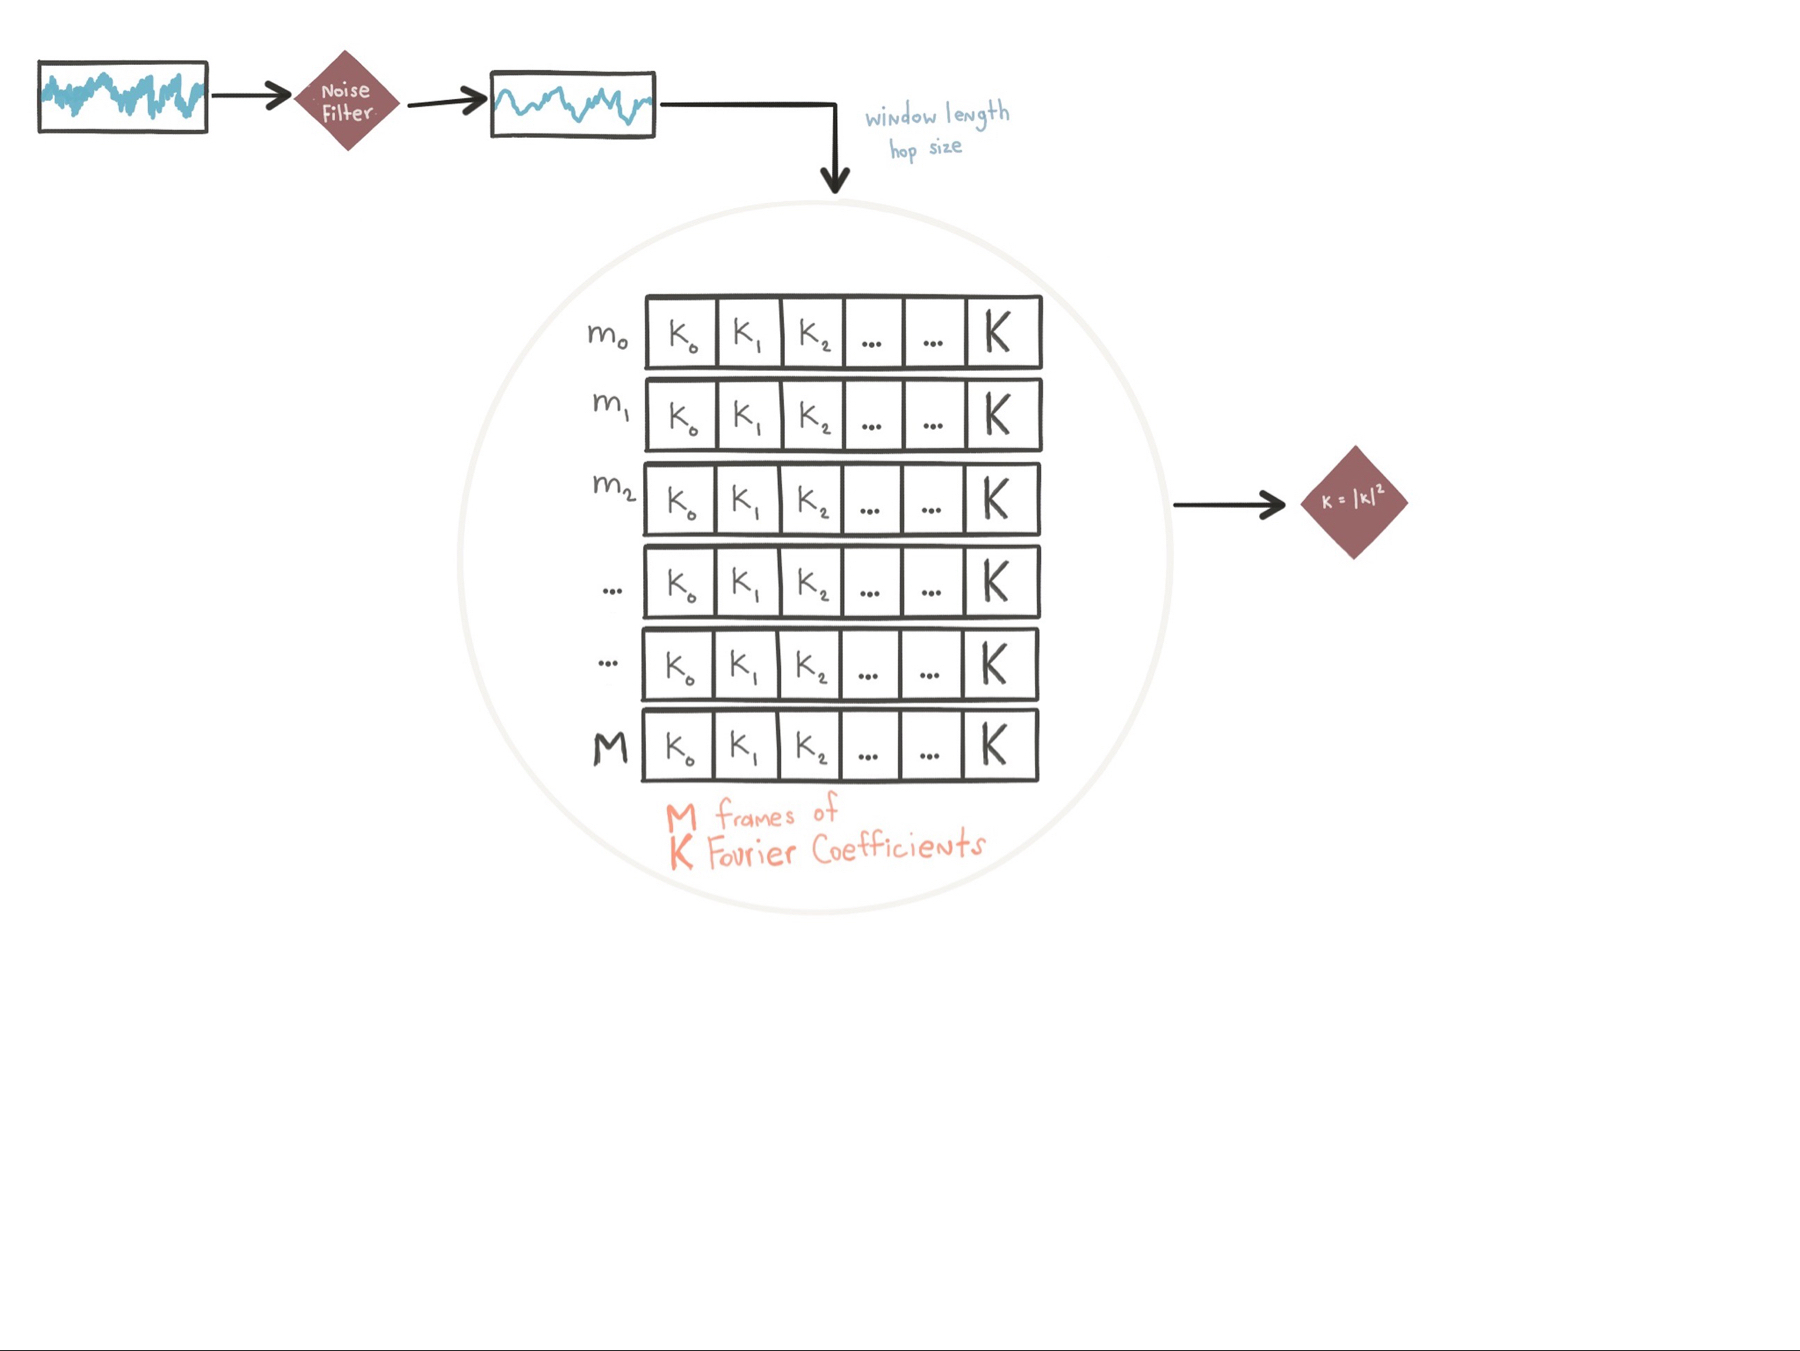 Noise
Filter
window length
hop size
m₀ K₀ K₁ K₂ ... ... K
m₁ K₀ K₁ K₂ ... ... K
m₂ K₀ K₁ K₂ ... ... K
... K₀ K₁ K₂ ... ... K
... K₀ K₁ K₂ ... ... K
M K₀ K₁ K₂ ... ... K
K = |K|²
M frames of
K Fourier Coefficients